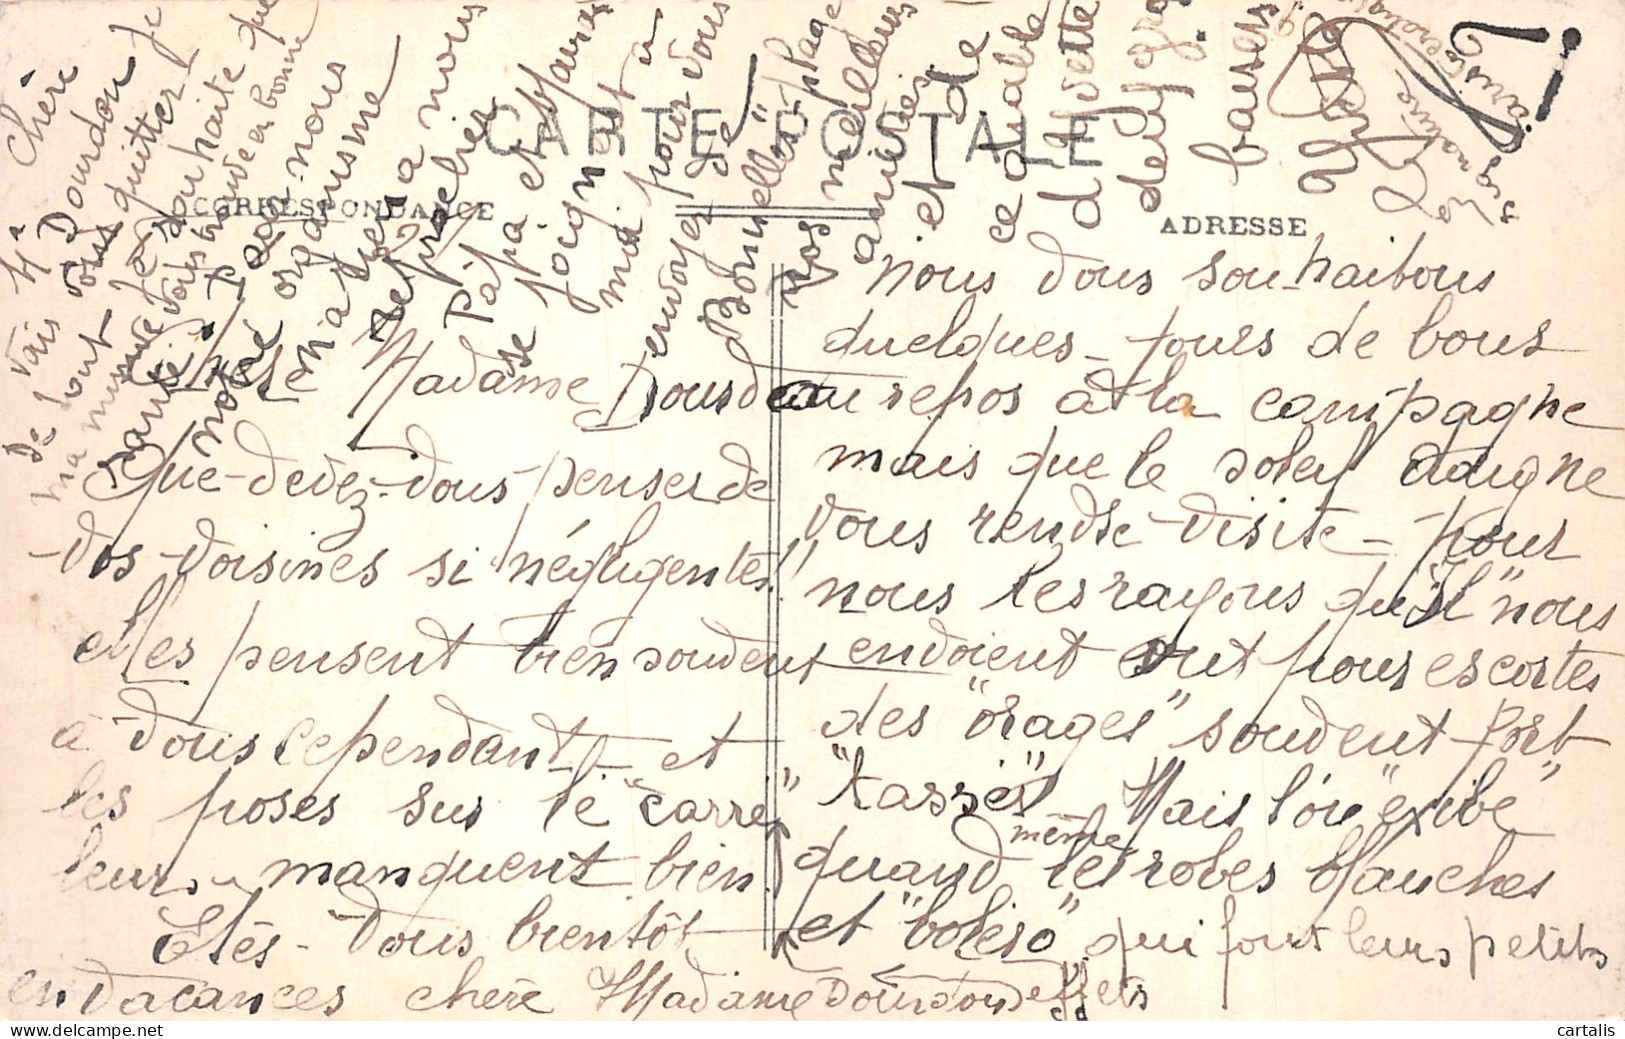 CARTE POSTALE
CORRESPONDANCE
ADRESSE
Chère Madame Dourdou
Que devez-vous penser de
vos voisines si négligentes!!
elles pensent bien souvent
à vous cependant et
les poses sur le "carré"
leurs manquent bien!
Etes-vous bientôt
en vacances chère Madame Dourdou
nous vous souhaitons
quelques jours de bons
au repos à la campagne
mais que le soleil daigne
vous rendre visite pour
nous les rayons qu'"il" nous
envoient ont pour escortes
des "orages" souvent fort
"tassés" Mais l'on "exibe"
quand même les robes blanches
et "boléro" qui font leurs petits
effets
Chère
Mme Dourdou je
vais vous quitter je
de tout
vous souhaite que
vous trouve en bonne
santé
pour nous
notre organisme
n'a rien à nous
se reprocher
Papa et Maurice
se joignent à
moi pour vous
envoyer de
"Bonnelles-plage"
nos meilleurs
amitiés
et de
ce diable
d'Yvette
deux gros
baisers
Yvette
La
signature